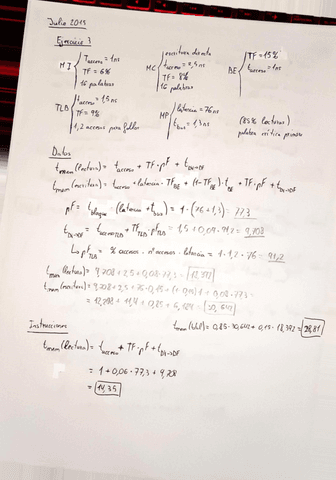 Julio 2019
Ejercicio 3
MI { t acceso = 1ns
TF = 6%
16 palabras
MC { escritura directa
t acceso = 2,5ns
TF = 8%
16 palabras
BE { TF = 15%
t acceso = 1ns
TLB { t acceso = 1,5ns
TF = 9%
1,2 accesos para fallos
MP { latencia = 76ns
t bus = 1,3ns
(85% lecturas)
palabra crítica primero
Datos
t mem (lectura) = t acceso + TF·pF + t DV→DF
t mem (escritura) = t acceso + latencia·TF BE + (1-TF BE)·t BE + TF·pF + t DV→DF
pF = t bloque·(latencia + t bus) = 1·(76+1,3) = 77,3
t DV→DF = t acceso TLB + TF TLB·pF TLB = 1,5 + 0,09·91,2 = 9,708
↳ pF TLB = % accesos · nº accesos · latencia = 1·1,2·76 = 91,2
t mem (lectura) = 9,708 + 2,5 + 0,08·77,3 = 18,392
t mem (escritura) = 9,708 + 2,5 + 76·0,15 + (1-0,15)·1 + 0,08·77,3 =
= 12,208 + 11,4 + 0,85 + 6,184 = 30,642
Instrucciones
t mem (total) = 0,85·30,642 + 0,15·18,392 = 28,81
t mem (lectura) = t acceso + TF·pF + t DV→DF
= 1 + 0,06·77,3 + 9,708
= 14,35